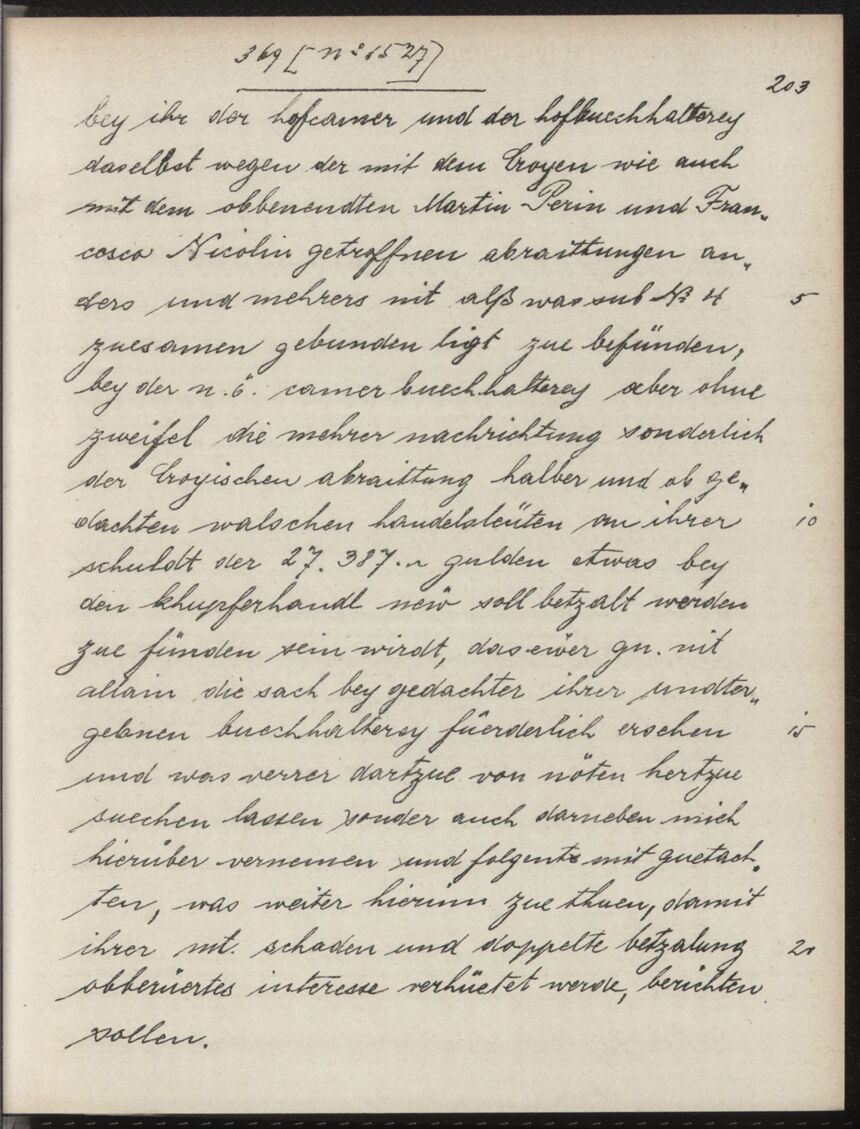 369 [nº 1527]
203
bey ihr der hofcamer und der hofbuechhalterey
daselbst wegen der mit dem Croyen wie auch
mit dem obbenendten Martin Perin und Fran„
cesco Nicolin getroffnen abraittungen an„
ders und mehrers nit alß was sub Nº 4 5
zuesamen gebunden ligt zue befünden,
bey der n. ö. camer buechhalterey aber ohne
zweifel die mehrer nachrichtung sonderlich
der Croyischen abraittung halber und ob ge„
dachten walschen handelsleüten an ihrer 10
schuldt der 27.387.– gulden etwas bey
den khupferhandl new soll betzalt werden
zue fünden sein wirdt, das ewer gn. nit
allain die sach bey gedachter ihrer undter„
gebnen buechhalterey füerderlich ersehen 15
und was verrer dartzue von nöten hertzue
suechen lassen sonder auch darneben mich
hierüber vernemen und folgents mit guetach„
ten, was weiter hierinn zue thuen, damit
ihrer mt. schaden und doppelte betzalung 20
obberüertes interesse verhüetet werde, berichten
sollen.